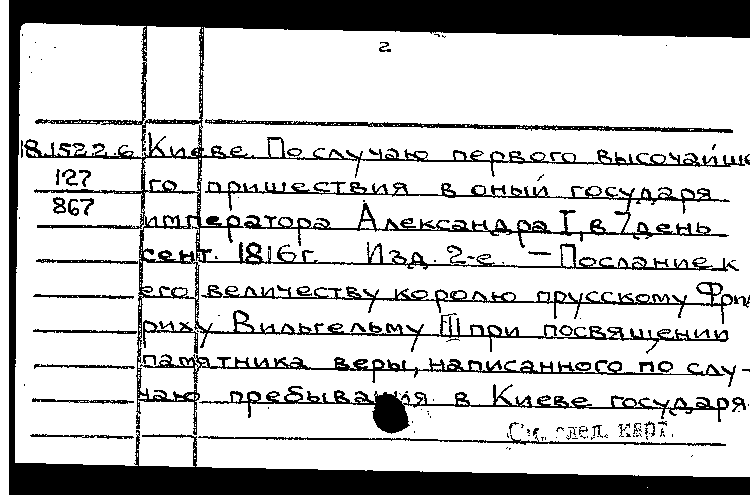 2
18.152.2.6 Киеве. По случаю первого высочайше
127 го пришествия в оный государя
867 императора Александра I, в 7 день
сент. 1816 г. Изд. 2-е. — Послание к
его величеству королю прусскому Фрид
риху Вильгельму III при посвящении
памятника веры, написанного по слу-
чаю пребывания в Киеве государя
См. след. карт.